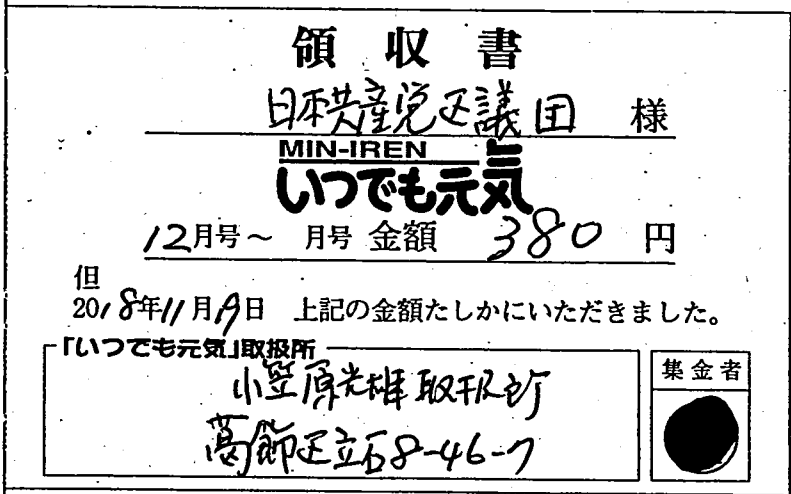 領収書
日本共産党区議団 様
MIN-IREN
いつでも元気
12月号～ 月号 金額 380 円
但
2018年11月19日 上記の金額たしかにいただきました。
「いつでも元気」取扱所
小笠原光雄取扱所
葛飾区立石8-46-7
集金者